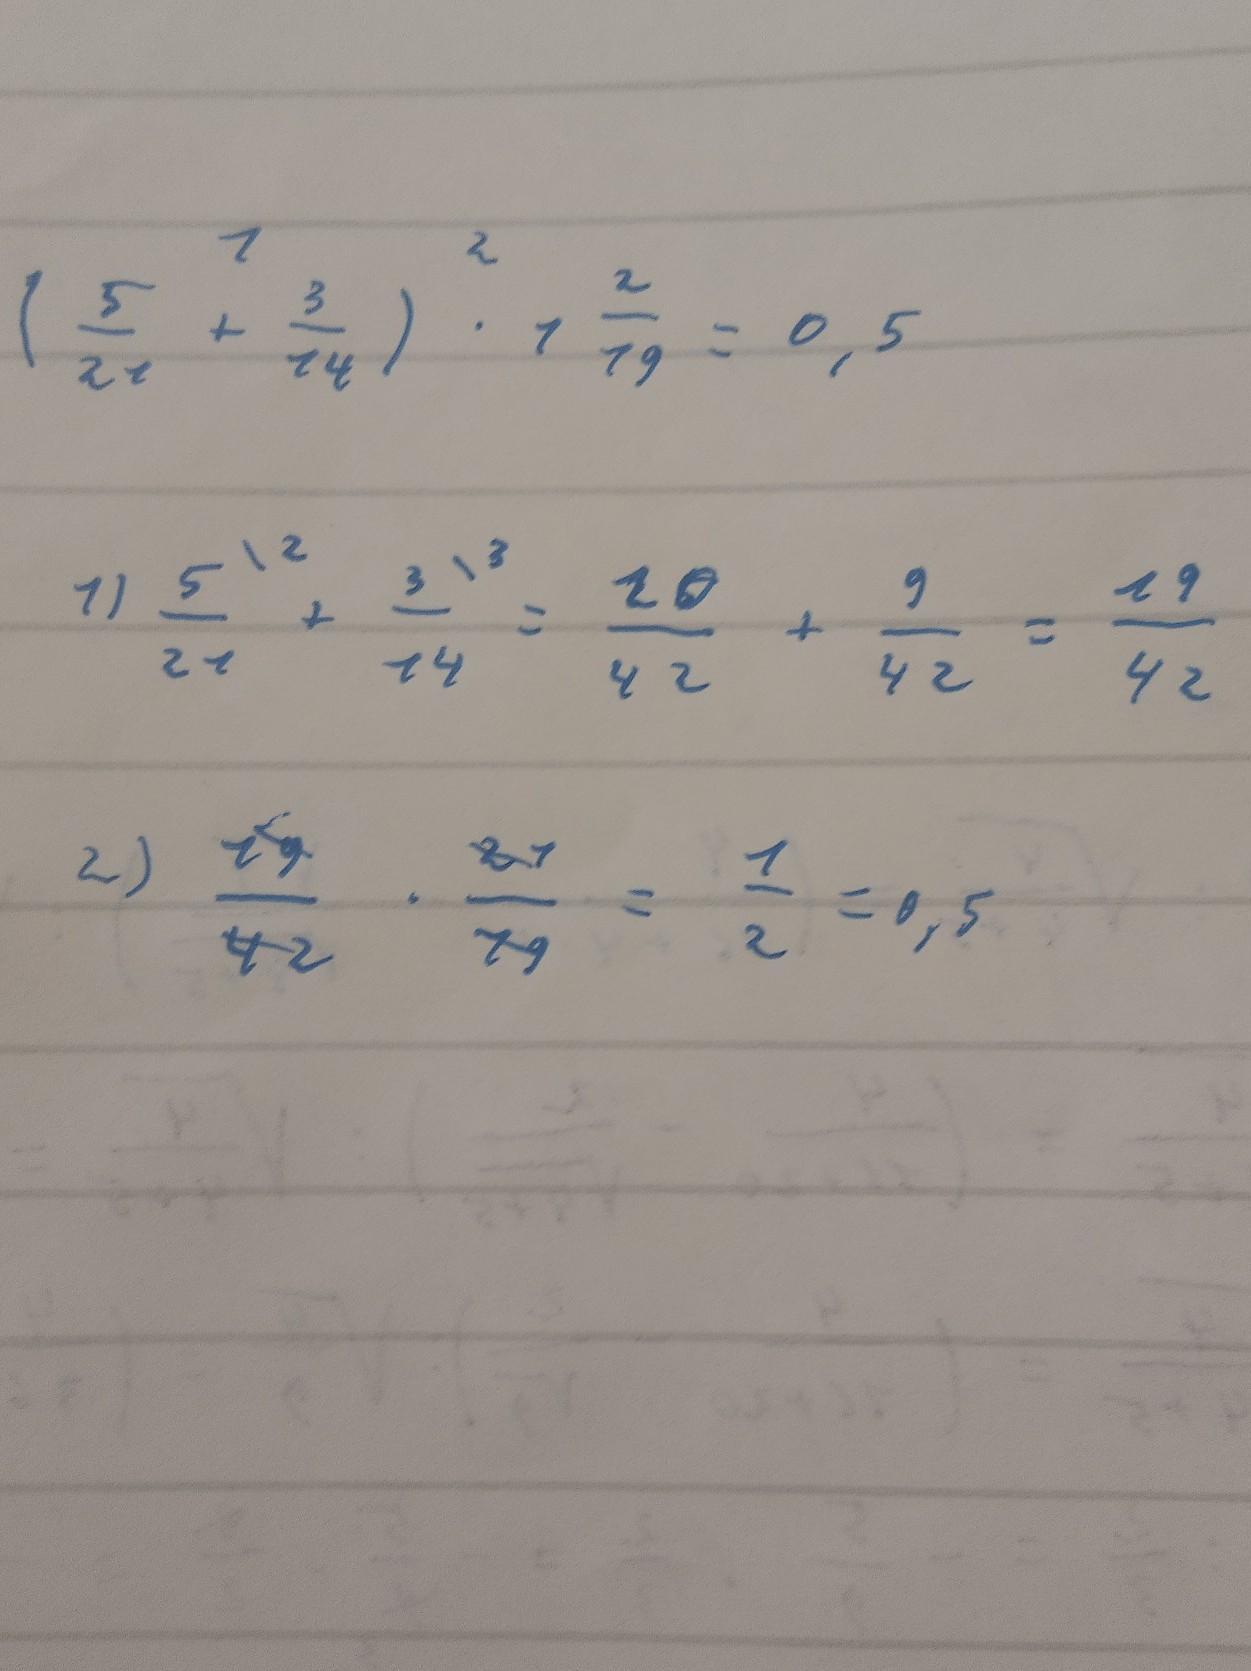 (5/21 + 3/14) · 1 2/19 = 0,5
1) 5\2/21 + 3\3/14 = 10/42 + 9/42 = 19/42
2) 19/42 · 21/19 = 1/2 = 0,5